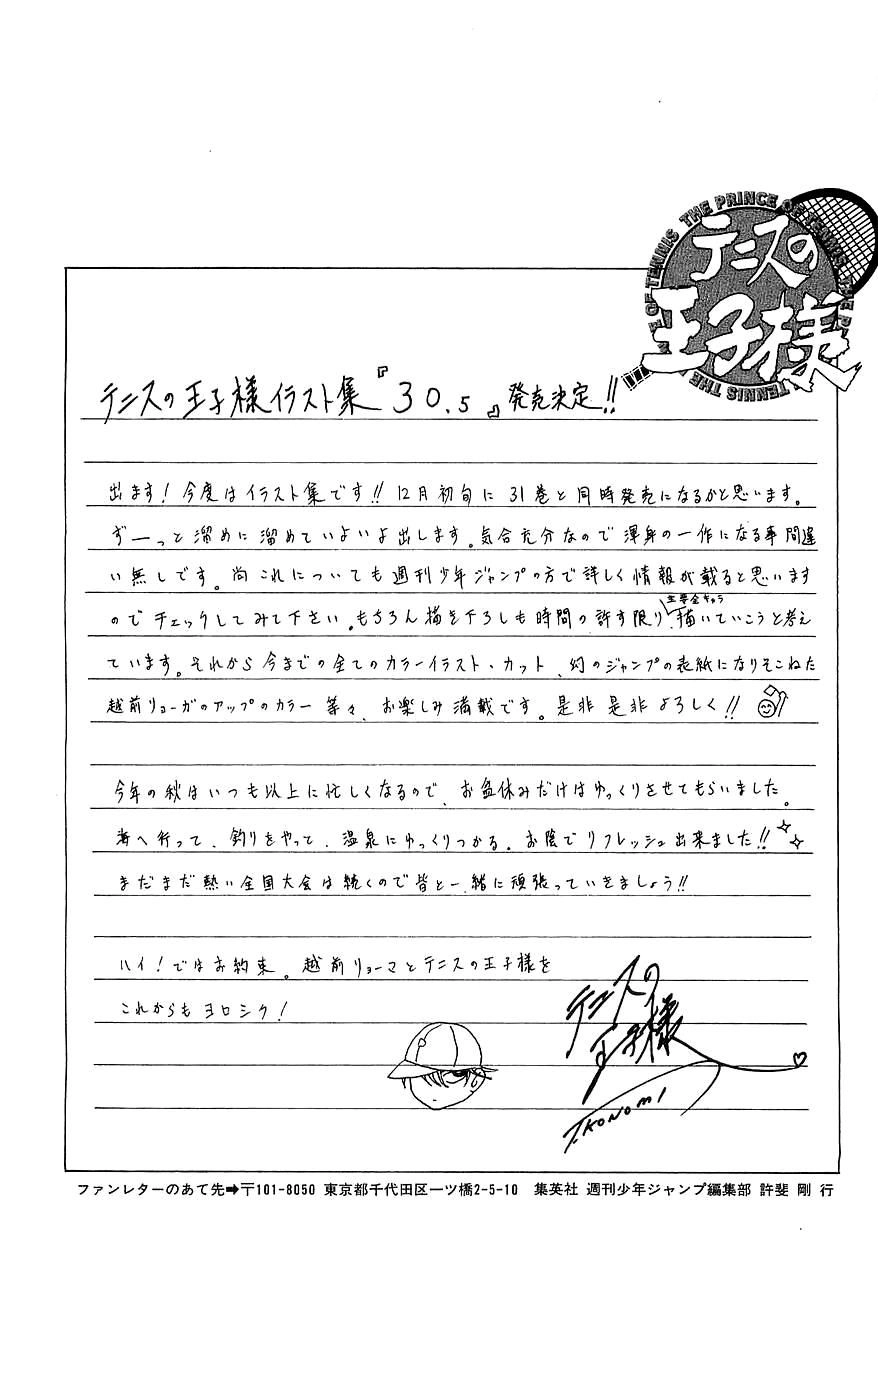 THE PRINCE OF TENNIS
テニスの
王子様
テニスの王子様イラスト集『30.5』発売決定!!
出ます!今度はイラスト集です!!12月初旬に31巻と同時発売になるかと思います。
ずーっと溜めに溜めていよいよ出します。気合充分なので渾身の一作になる事間違
い無しです。尚これについても週刊少年ジャンプの方で詳しく情報が載ると思います
主要全キャラ
のでチェックしてみて下さい。もちろん描き下ろしも時間の許す限り、描いていこうと考え
ています。それから今までの全てのカラーイラスト・カット、幻のジャンプの表紙になりそこねた
越前リョーガのアップのカラー等々、お楽しみ満載です。是非是非よろしく!!
今年の秋はいつも以上に忙しくなるので、お盆休みだけはゆっくりさせてもらいました。
海へ行って、釣りをやって、温泉にゆっくりつかる。お陰でリフレッシュ出来ました!!
まだまだ熱い全国大会は続くので皆と一緒に頑張っていきましょう!!
ハイ!ではお約束。越前リョーマとテニスの王子様を
これからもヨロシク!
テニスの
王子様
T.KONOMI
ファンレターのあて先➡〒101-8050 東京都千代田区一ツ橋2-5-10 集英社 週刊少年ジャンプ編集部 許斐 剛 行